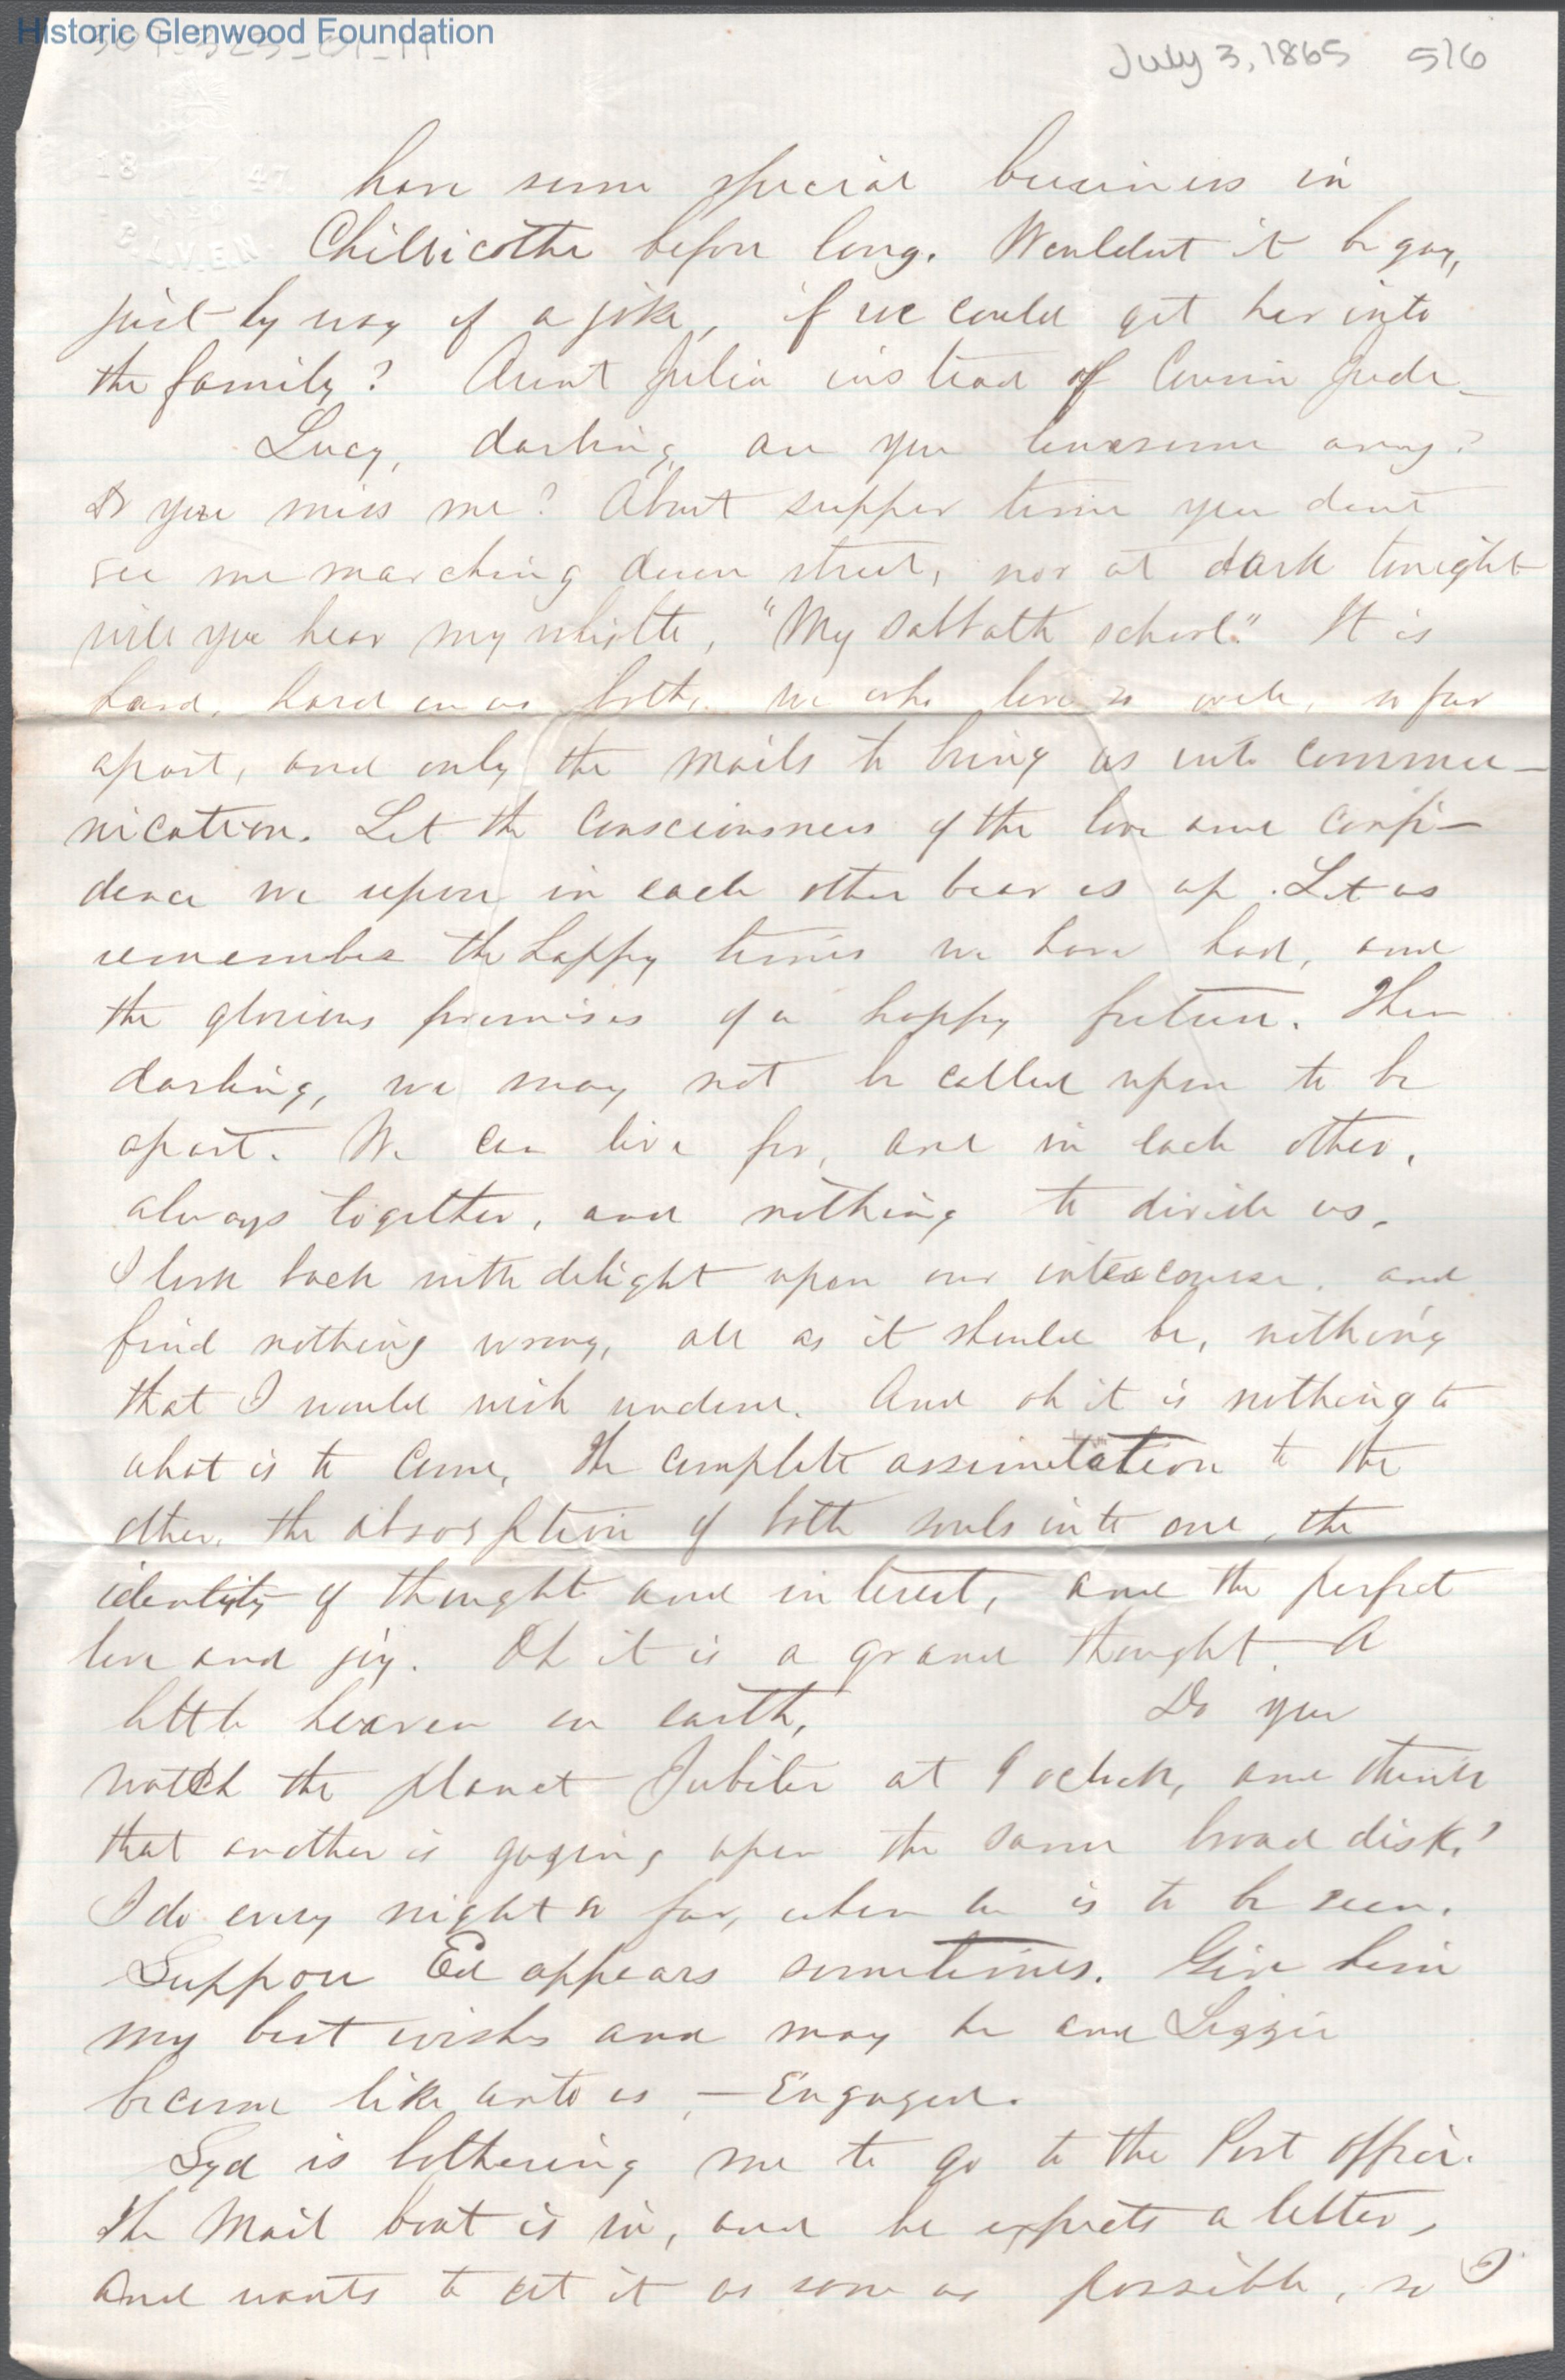 Historic Glenwood Foundation
July 3, 1865 516
have some special business in
Chillicothe before long. Wouldnt it be gay,
just by way of a joke, if we could get her into
the family? Aunt Julia instead of Cousin Jude_
Lucy, darling, are you lonesome any?
Do you miss me? About supper time you dont
see me marching down street, nor at dark tonight
will you hear my whistle, "My Sabbath school." It is
hard, hard on us both, we who love so well, so far
apart, and only the mails to bring us into commu-
nication. Let the consciousness of the love and confi-
dence we repose in each other bear us up. Let us
remember the happy times we have had, and
the glorious promises of a happy future. Then
darling, we may not be called upon to be
apart. We can live for, and in each other,
always together, and nothing to divide us.
I look back with delight upon our intercourse, and
find nothing wrong, all as it should be, nothing
that I would wish undone. And oh it is nothing to
what is to come, the complete assimilation to the
other, the absorption of both souls into one, the
identity of thought and interest, and the perfect
love and joy. Oh it is a grand thought. A
little heaven on earth. Do you
watch the planet Jubiter at 9 oclock, and think
that another is gazing upon the same broad disk?
I do every night so far, when he is to be seen.
Suppose Ed appears sometimes. Give him
my best wishes and may he and Lizzie
become like unto us, — Engaged.
Syd is bothering me to go to the Post office.
The Mail boat is in, and he expects a letter,
and wants to get it as soon as possible, so I